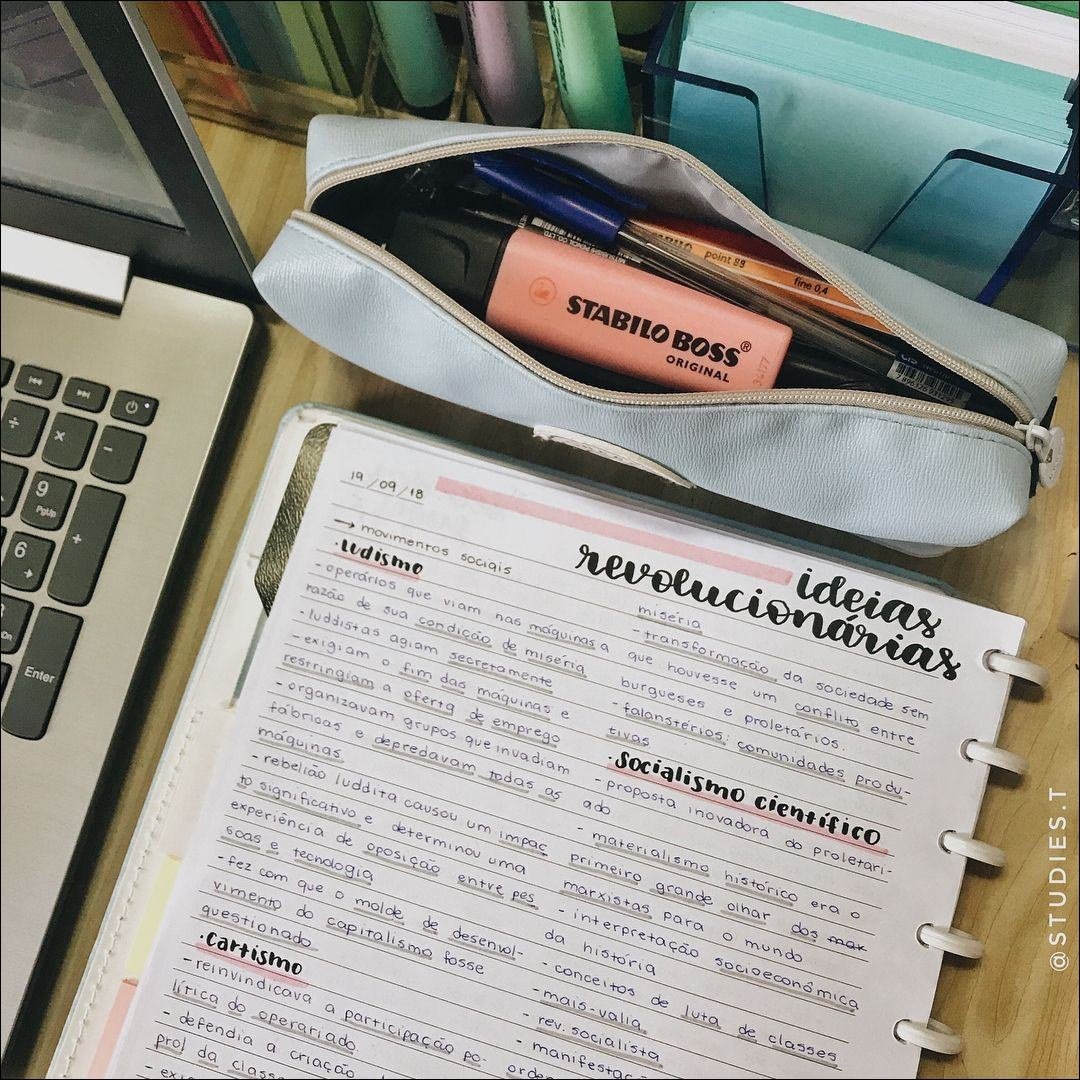 STABILO BOSS®
ORIGINAL
point 88
fine 0,4
9
PgUp
6
Enter
19/09/18
ideias
revolucionárias
→ movimentos sociais
·ludismo
- operários que viam nas máquinas a
razão de sua condição de miséria
- luddistas agiam secretamente
- exigiam o fim das máquinas e
restringiam a oferta de emprego
- organizavam grupos que invadiam
fábricas e depredavam todas as
máquinas
- rebelião luddita causou um impac
to significativo e determinou uma
experiência de oposição entre pes
soas e tecnologia
- fez com que o molde de desenvol-
vimento do capitalismo fosse
questionado
·Cartismo
- reinvindicava a participação po-
lítica do operariado
- defendia a criação
prol da classe
miséria
- transformação da sociedade sem
que houvesse um conflito entre
burgueses e proletários.
- falanstérios: comunidades produ-
tivas
·Socialismo científico
- proposta inovadora do proletari-
ado
- materialismo histórico era o
primeiro grande olhar dos mar
marxistas para o mundo
- interpretação socioeconômica
da história
- conceitos de luta de classes
- mais-valia
- rev. socialista
- manifestaç
ordem
@STUDIES.T